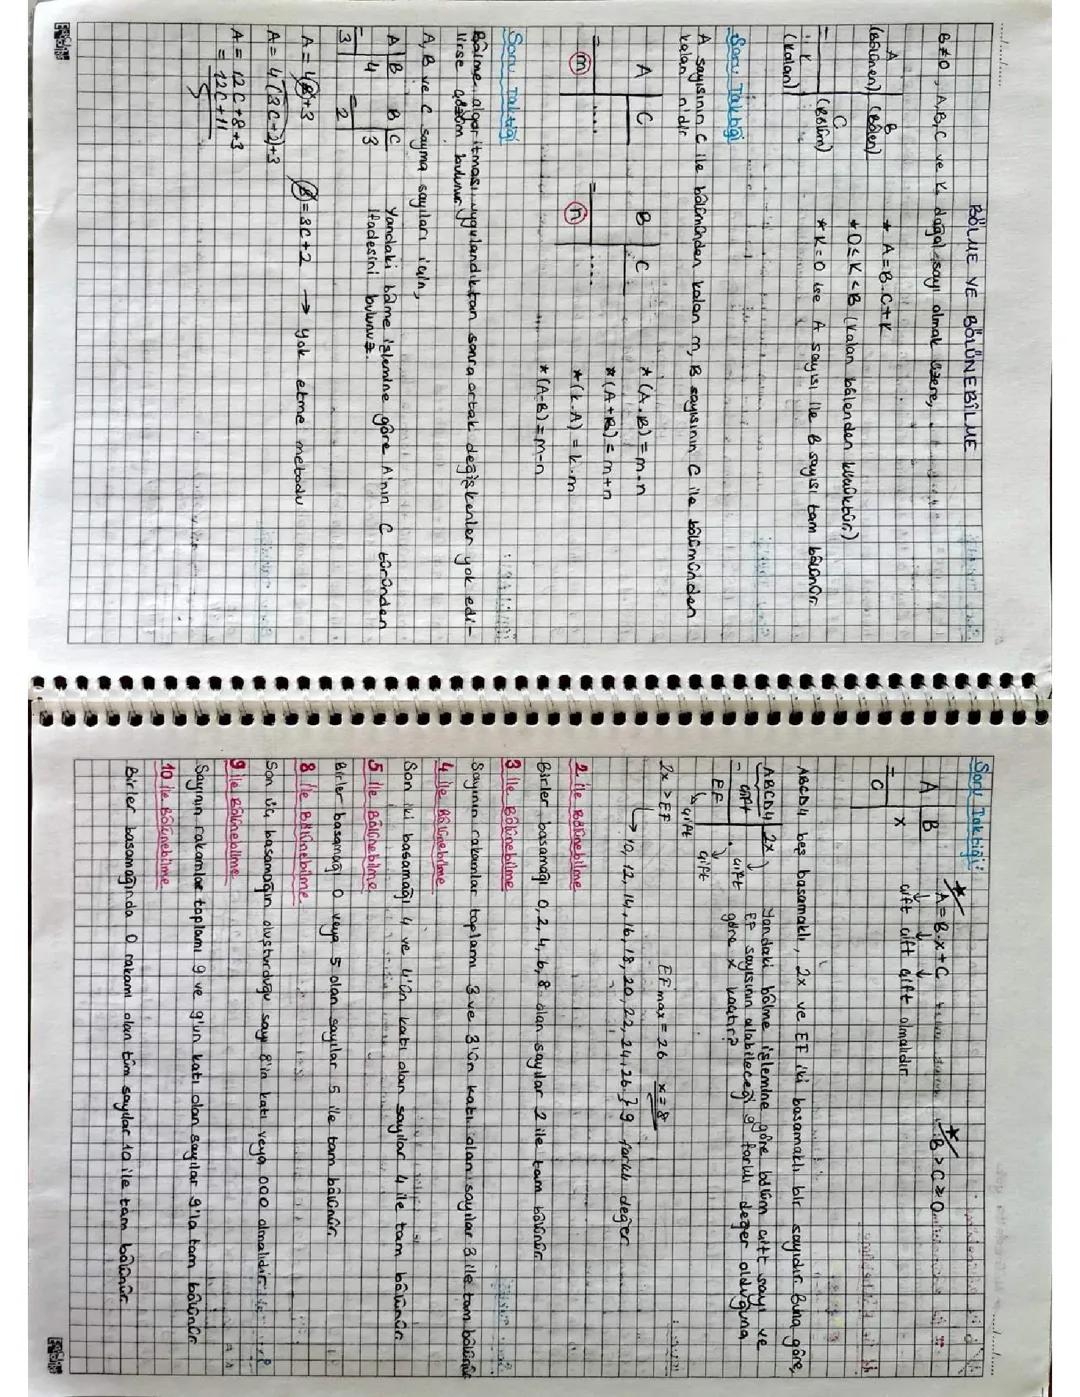 BÖLME VE BÖLÜNEBİLME
B≠0, A,B,C ve K doğal sayı olmak üzere,
A (Bölünen) | B (Bölen)
C (Bölüm)
K (Kalan)
* A=B.C+K
* 0≤K<B (Kalan bölenden küçüktür)
* K=0 ise A sayısı ile B sayısı tam bölünür.
Soru Taktiği
A sayısının C ile bölümünden kalan m, B sayısının C ile bölümünden
kalan n'dir.
A | C
....
m
B | C
....
n
* (A.B)=m.n
* (A+B)=m+n
* (k.A)=k.m
* (A-B)=m-n
Soru Taktiği
Bölme algoritması uygulandıktan sonra ortak değişkenler yok edi-
lirse çözüm bulunur.
A, B ve C sayma sayıları için,
A | B
4
3
B | C
3
2
Yandaki bölme işlemine göre A'nın C türünden
ifadesini bulunuz.
A = 4B+3 B=3C+2 → yok etme metodu
A = 4(3C+2)+3
A = 12C+8+3
= 12C+11
Soru Taktiği:
A | B
x
C
* A=B.x+C
çift çift çift olmalıdır
* B>C≥0
ABCD4 beş basamaklı, 2x ve EF iki basamaklı bir sayıdır. Buna göre,
ABCD4 | 2x → çift
çift
EF → çift
çift
Yandaki bölme işlemine göre bölüm çift sayı ve
EF sayısının alabileceği 9 farklı değer olduğuna
göre x kaçtır?
2x > EF EFmax = 26 x=8
→ 10, 12, 14, 16, 18, 20, 22, 24, 26 } 9 farklı değer
2 ile Bölünebilme
Birler basamağı 0, 2, 4, 6, 8 olan sayılar 2 ile tam bölünür.
3 ile Bölünebilme
Sayının rakamlar toplamı 3 ve 3'ün katı olan sayılar 3 ile tam bölünür
4 ile Bölünebilme
Son iki basamağı 4 ve 4'ün katı olan sayılar 4 ile tam bölünür
5 ile Bölünebilme
Birler basamağı 0 veya 5 olan sayılar 5 ile tam bölünür
8 ile Bölünebilme
Son üç basamağın oluşturduğu sayı 8'in katı veya 000 olmalıdır
9 ile Bölünebilme
Sayının rakamlar toplamı 9 ve 9'un katı olan sayılar 9'la tam bölünür
10 ile Bölünebilme
Birler basamağında 0 rakamı olan tüm sayılar 10 ile tam bölünür.